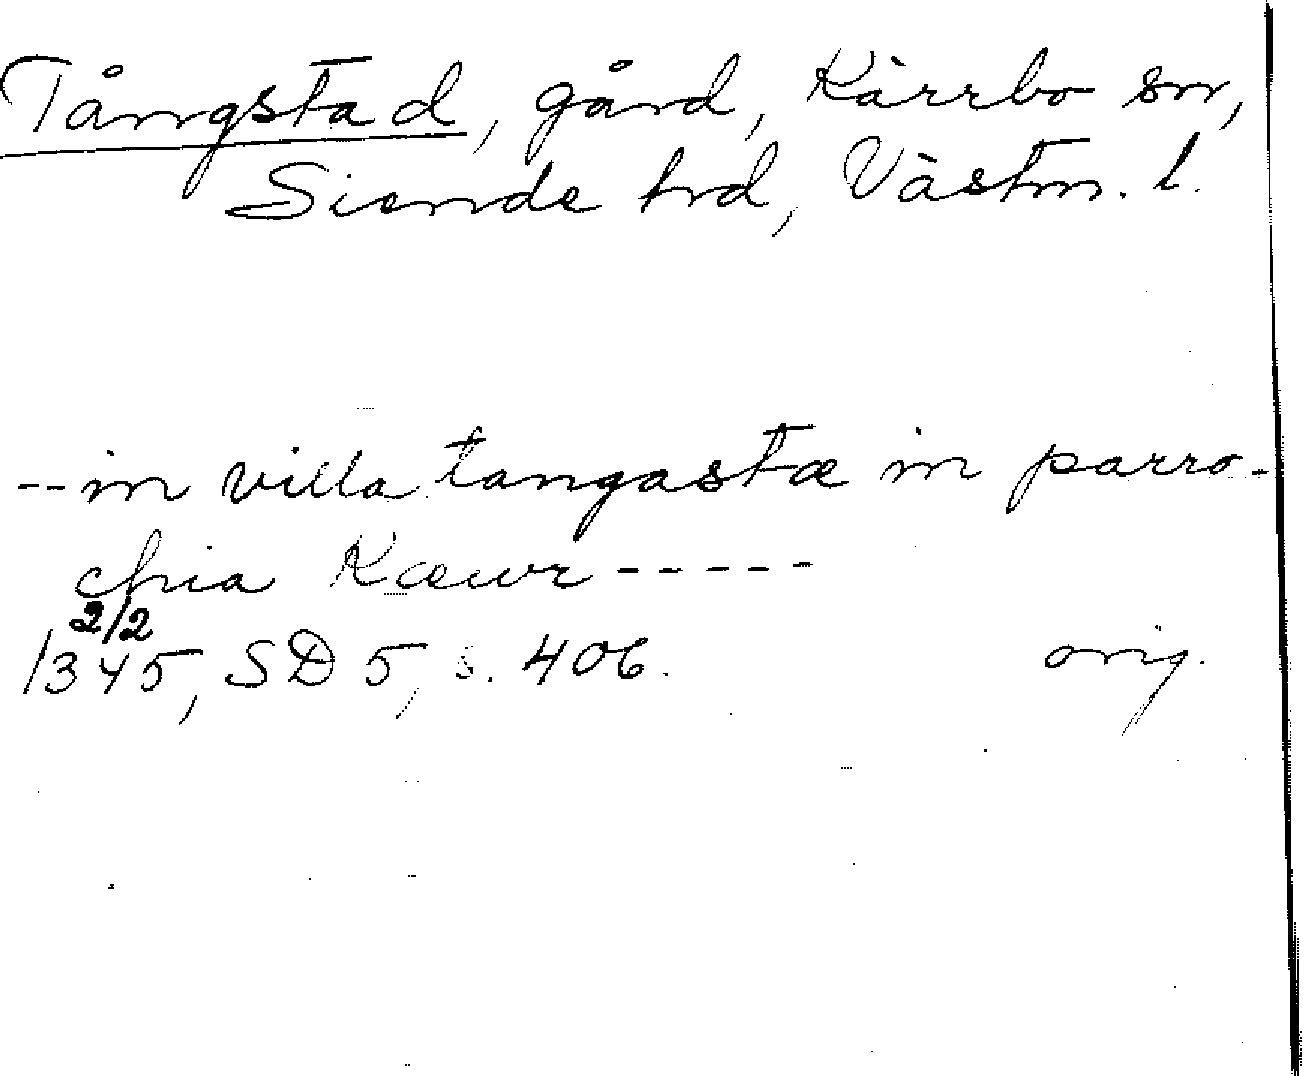 Tångstad, gård, Kärrbo sn,
Siende hd, Västm. l.
--in villa tangastæ in parro-
chia Kæwr-----
2/2
1345, SD 5, s. 406. orig.